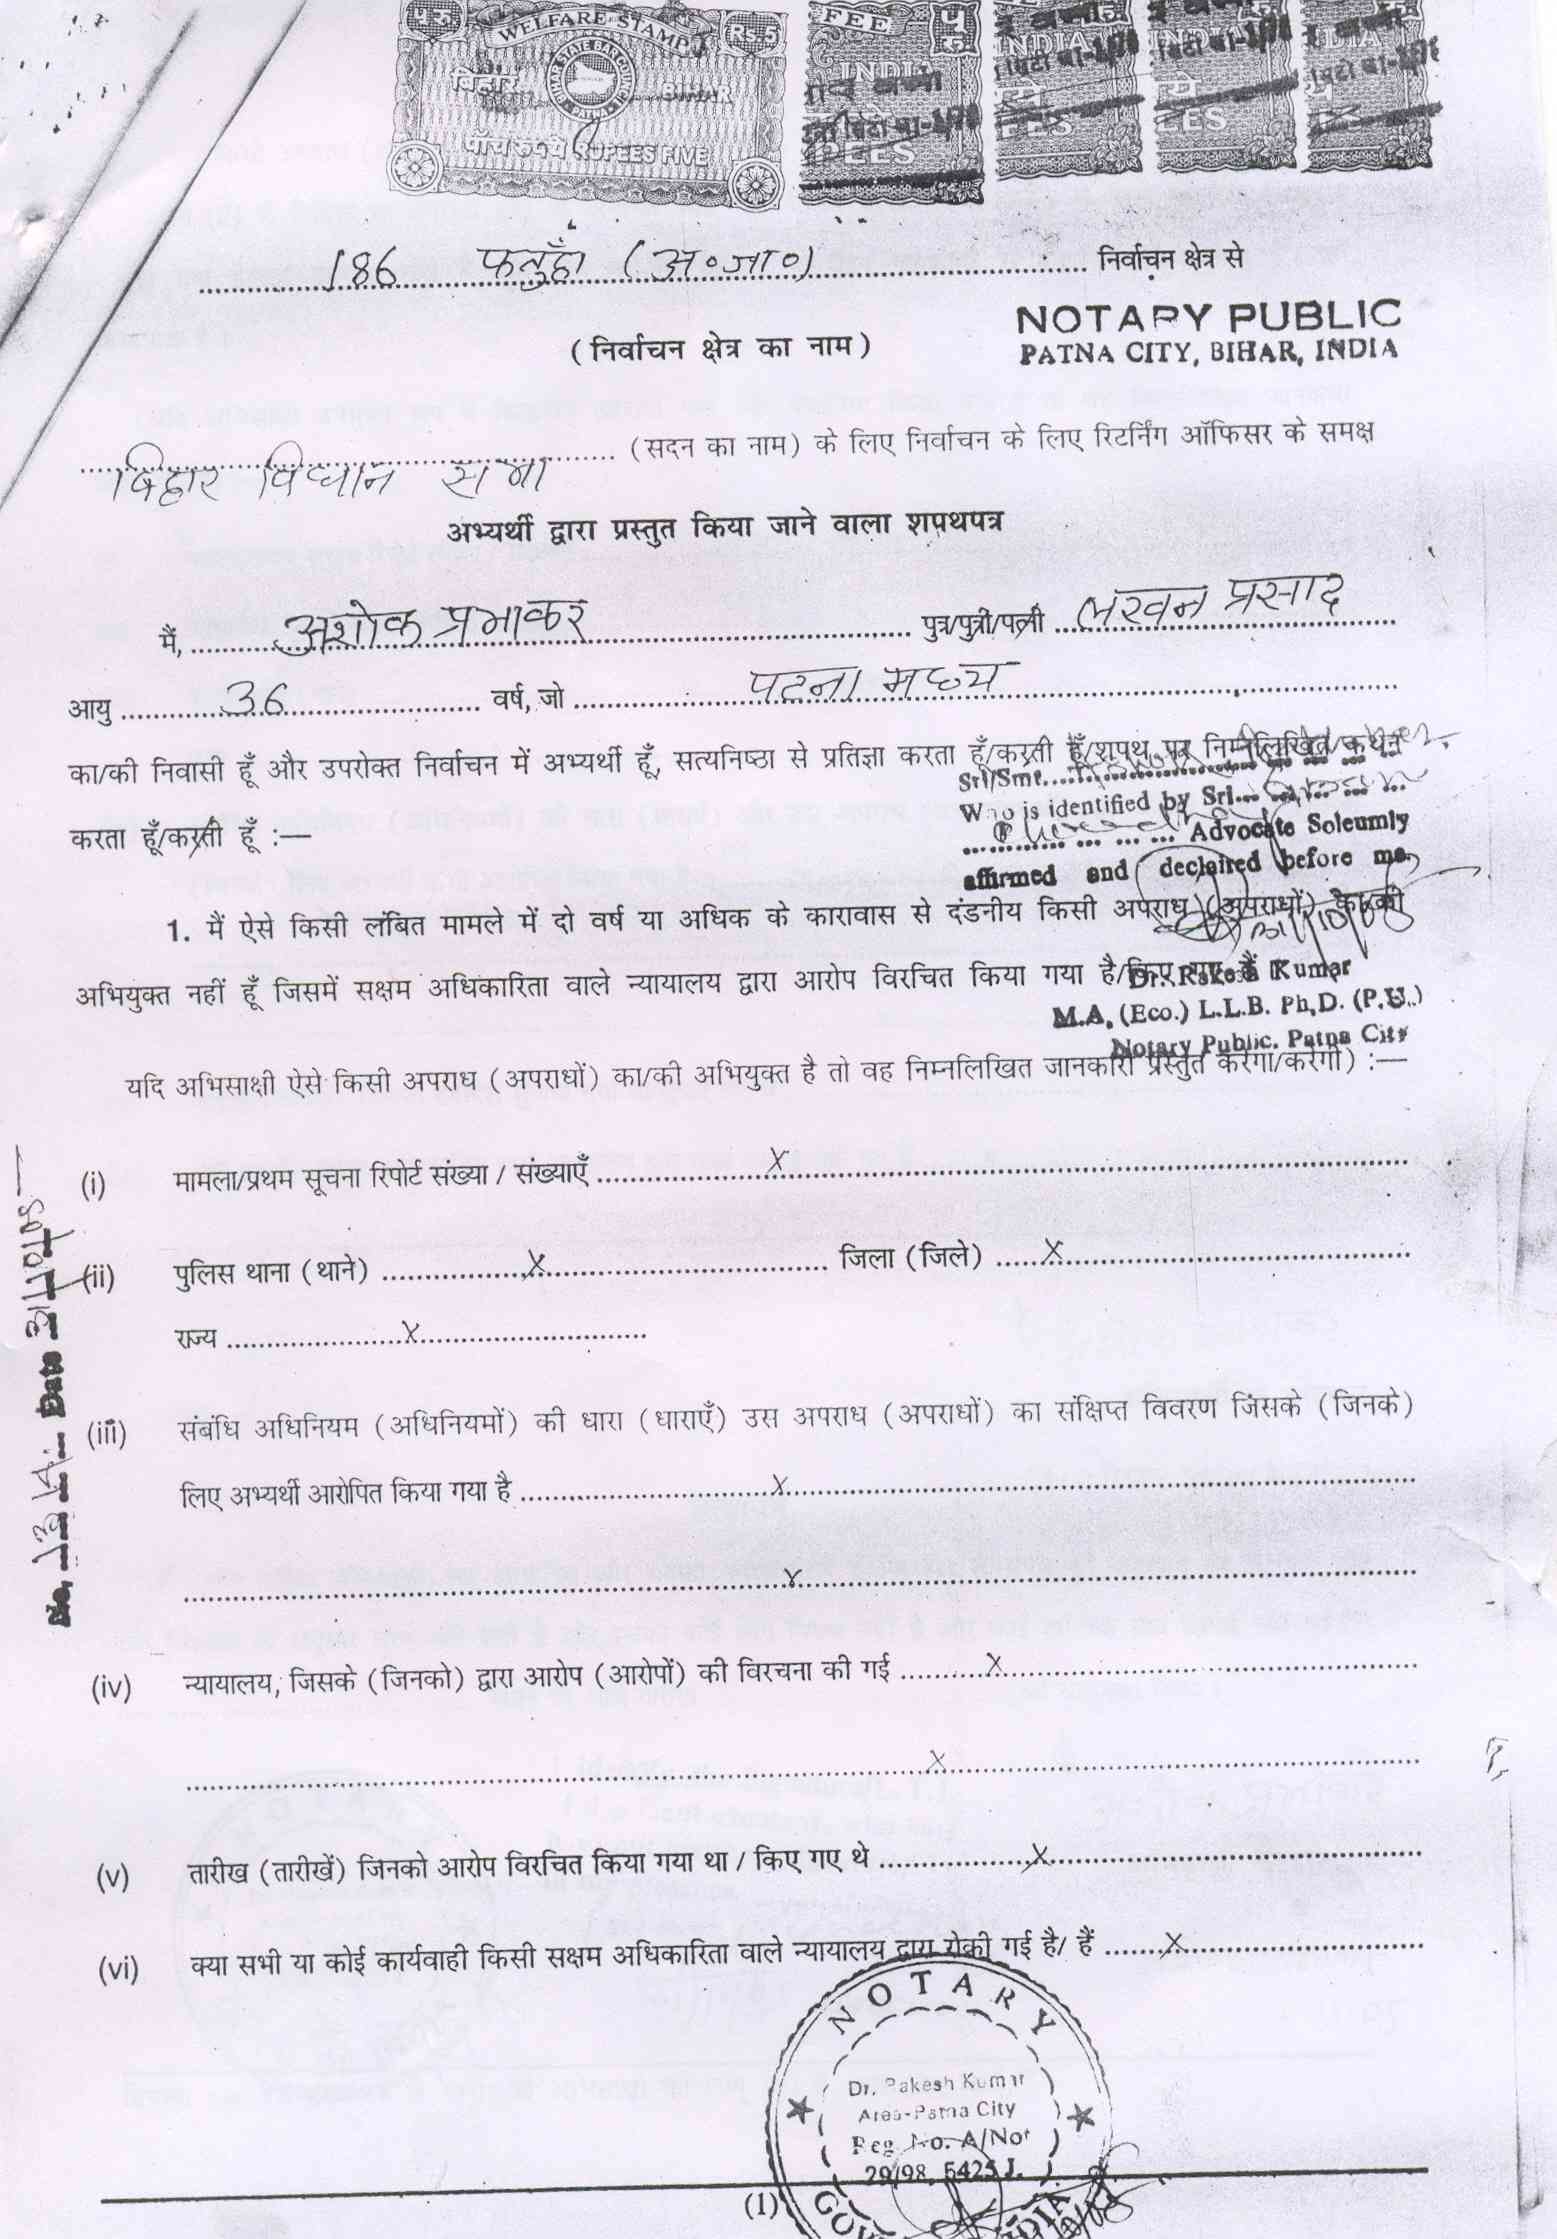 प.रु. WELFARE STAMP Rs.5
बिहार BIHAR STATE BAR COUNCIL PATNA BIHAR
पाँच रुपये RUPEES FIVE
FEE प रु INDIA INDIA
186 फतुहाँ (अ०जा०) निर्वाचन क्षेत्र से
NOTARY PUBLIC
(निर्वाचन क्षेत्र का नाम)
PATNA CITY, BIHAR, INDIA
बिहार विधान सभा (सदन का नाम) के लिए निर्वाचन के लिए रिटर्निंग ऑफिसर के समक्ष
अभ्यर्थी द्वारा प्रस्तुत किया जाने वाला शपथपत्र
मैं, अशोक प्रभाकर पुत्र/पुत्री/पत्नी लखन प्रसाद
आयु 36 वर्ष, जो पटना मध्य
का/की निवासी हूँ और उपरोक्त निर्वाचन में अभ्यर्थी हूँ, सत्यनिष्ठा से प्रतिज्ञा करता हूँ/करती हूँ/शपथ पर निम्नलिखित/कथन
Sri/Smt.
Who is identified by Sri
करता हूँ/करती हूँ :—
Advocate Soleumly
affirmed and declaired before me.
1. मैं ऐसे किसी लंबित मामले में दो वर्ष या अधिक के कारावास से दंडनीय किसी अपराध (अपराधों) का/की
अभियुक्त नहीं हूँ जिसमें सक्षम अधिकारिता वाले न्यायालय द्वारा आरोप विरचित किया गया है/किए गए हैं
Dr. Rakesh Kumar
M.A. (Eco.) L.L.B. Ph,D. (P.U.)
Notary Public. Patna City
यदि अभिसाक्षी ऐसे किसी अपराध (अपराधों) का/की अभियुक्त है तो वह निम्नलिखित जानकारी प्रस्तुत करेगा/करेगी) :—
(i) मामला/प्रथम सूचना रिपोर्ट संख्या / संख्याएँ X
(ii) पुलिस थाना (थाने) X जिला (जिले) X
राज्य X
(iii) संबंधि अधिनियम (अधिनियमों) की धारा (धाराएँ) उस अपराध (अपराधों) का संक्षिप्त विवरण जिसके (जिनके)
लिए अभ्यर्थी आरोपित किया गया है X
X
(iv) न्यायालय, जिसके (जिनको) द्वारा आरोप (आरोपों) की विरचना की गई X
X
(v) तारीख (तारीखें) जिनको आरोप विरचित किया गया था / किए गए थे X
(vi) क्या सभी या कोई कार्यवाही किसी सक्षम अधिकारिता वाले न्यायालय द्वारा रोकी गई है/ हैं X
NOTARY
Dr. Rakesh Kumar
Area-Patna City
Reg. No. A/Not
29/98, 5425 J.
(1)